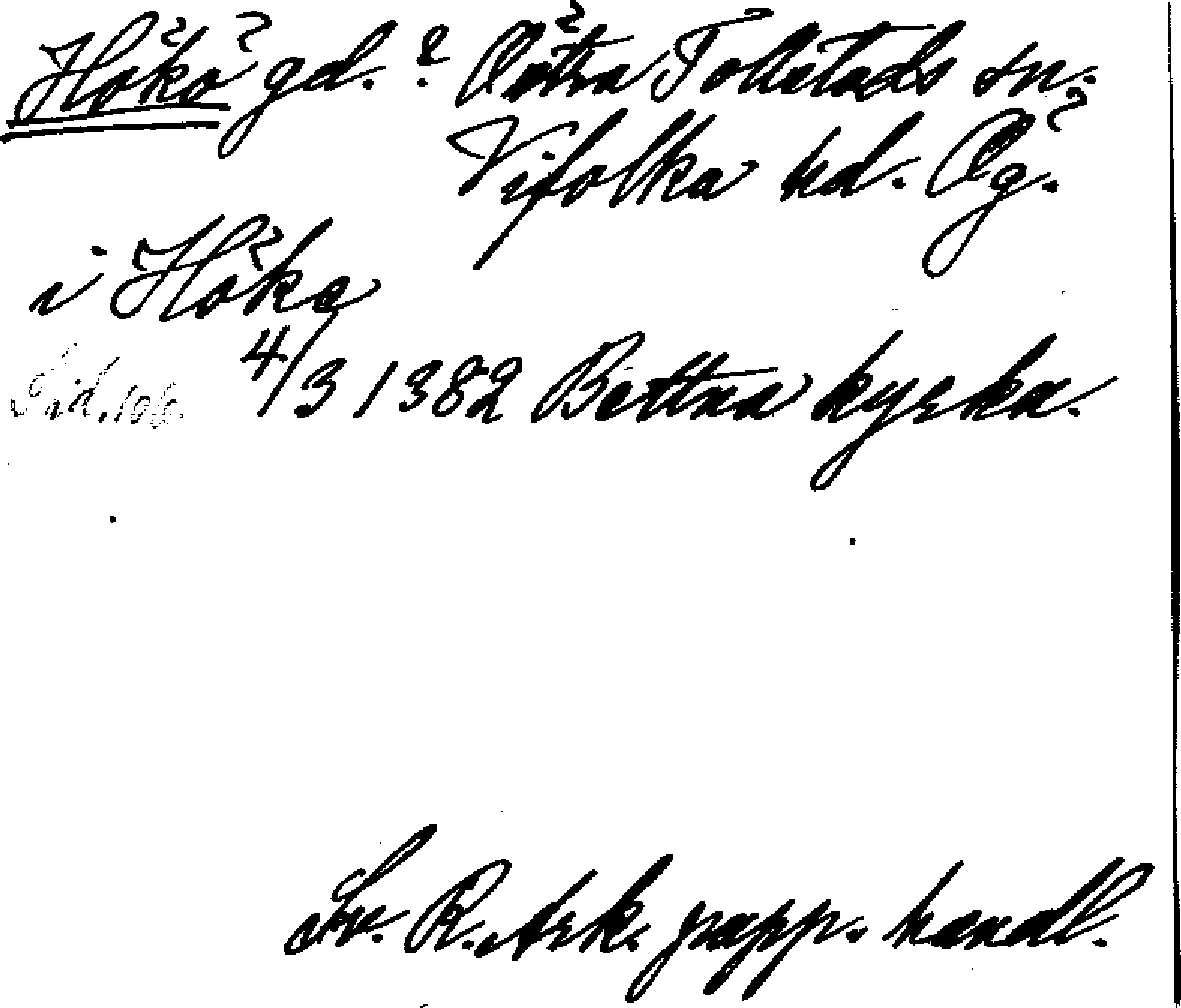 Hökö gd.? Östra Tollstads sn.
Vifolka hd. Ög.
i Höko
Sid. 106. 4/3 1382 Bettna kyrka.
Sv. R. Ark. papp. handl.